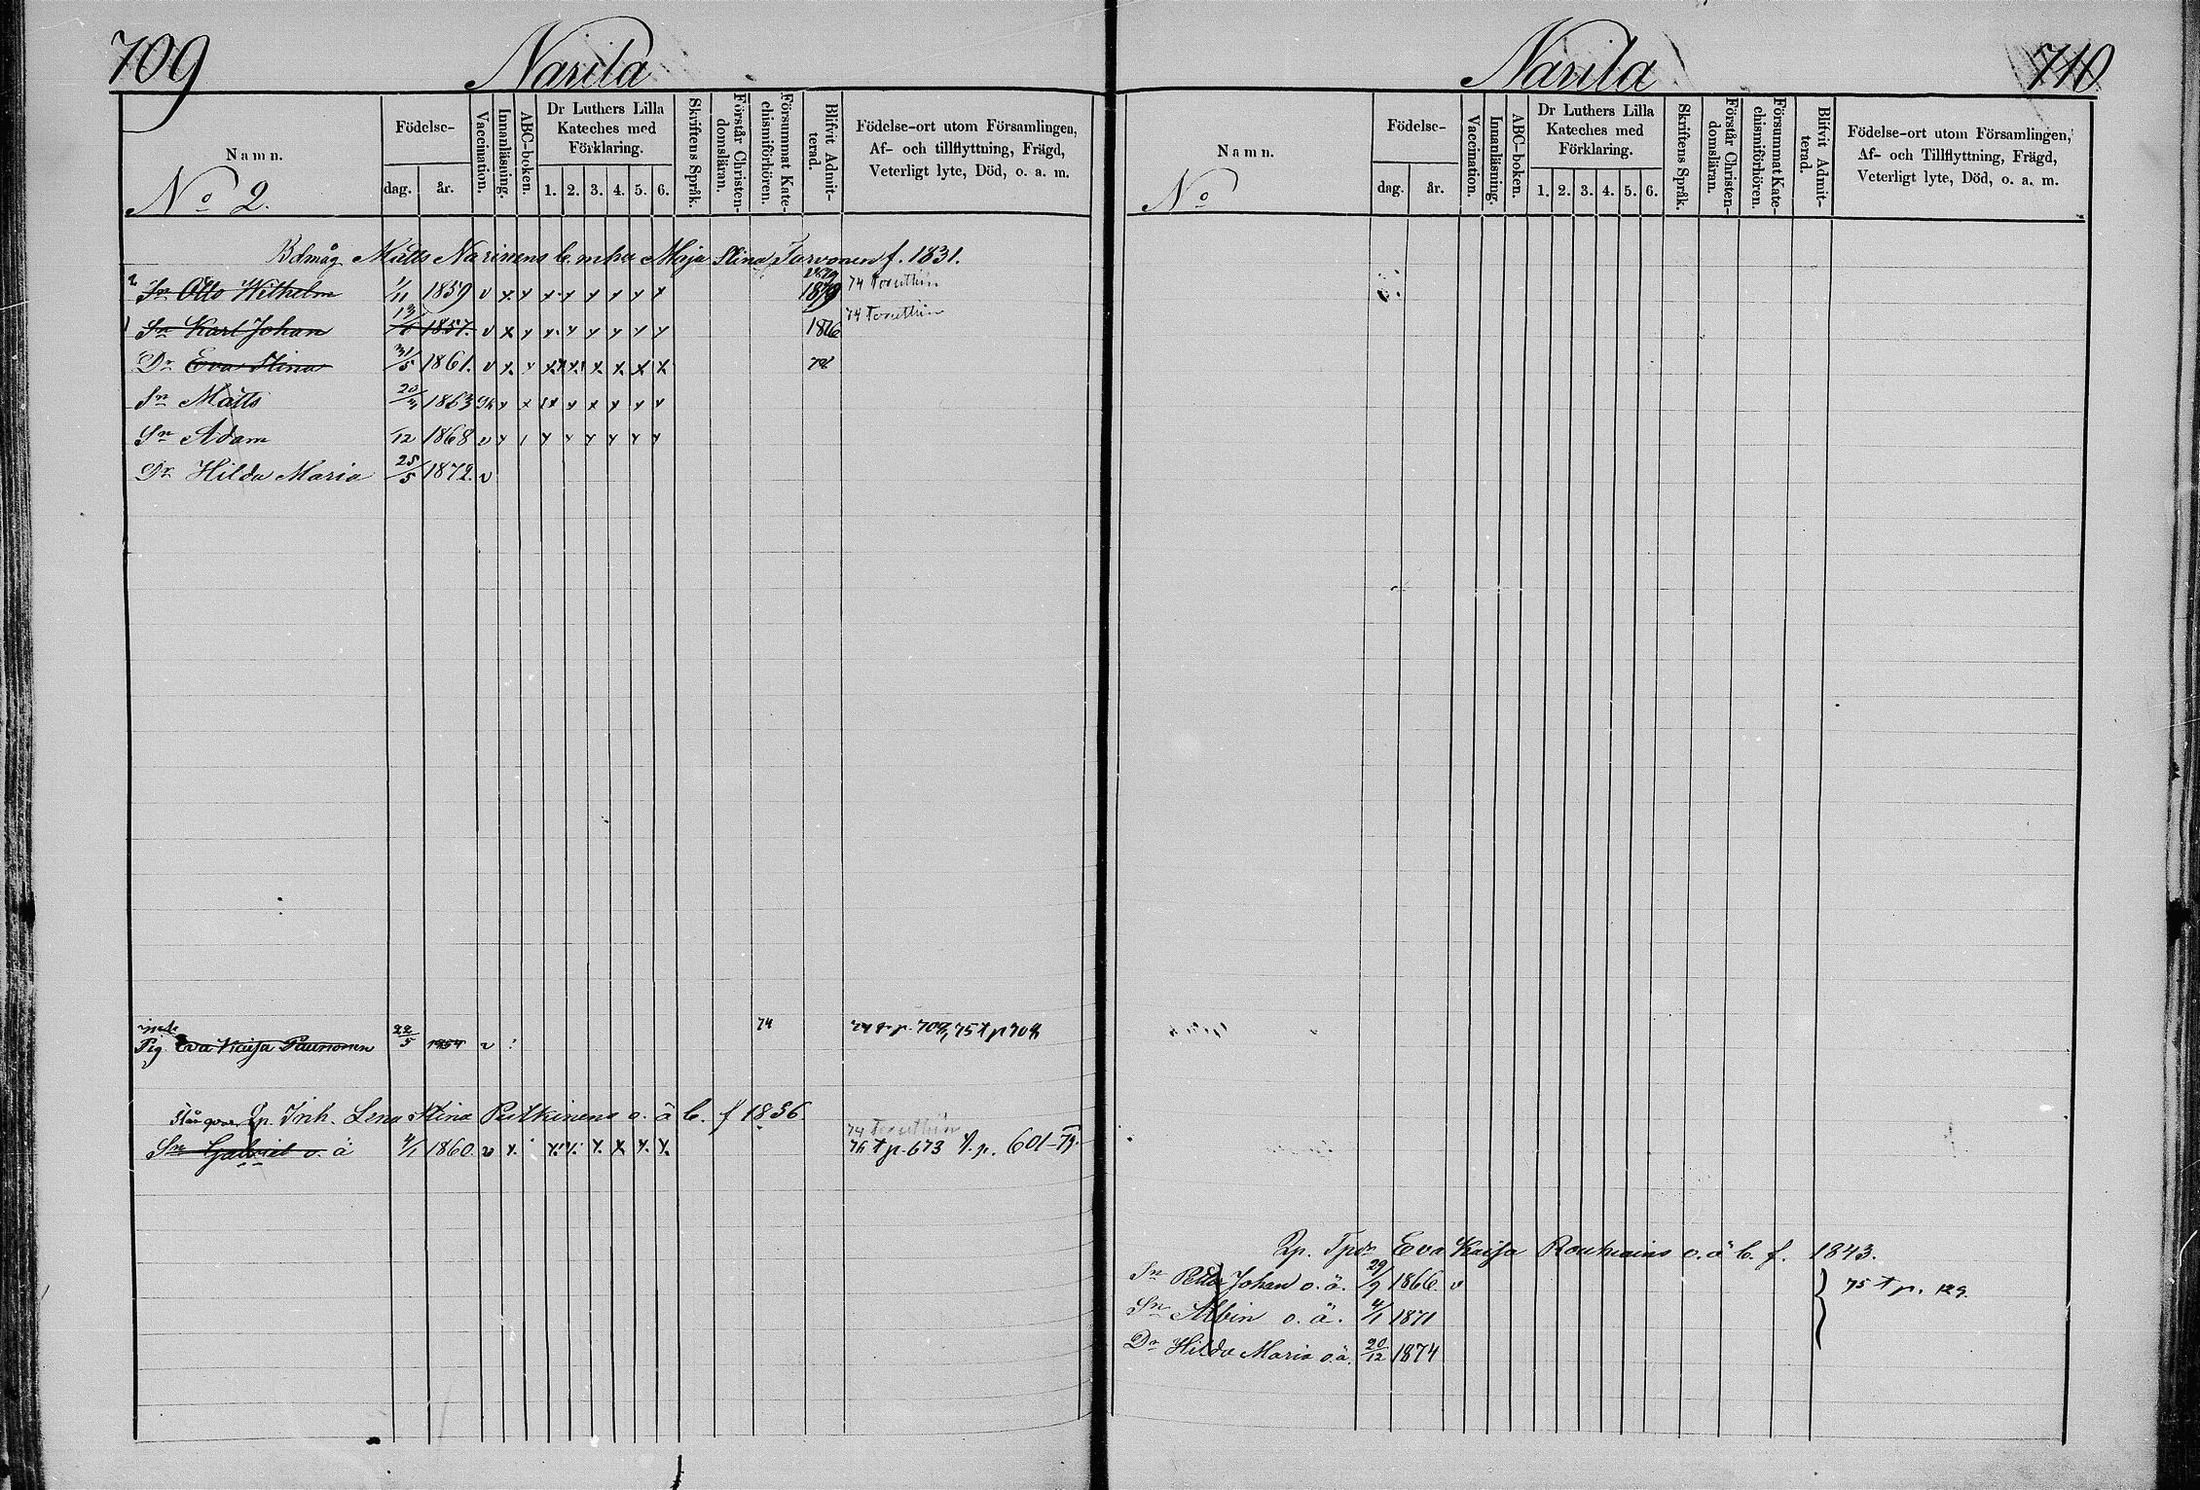 709
Narila
Namn.
No 2.
Födelse-
dag.
år.
Vaccination.
Innanläsning.
ABC-boken.
Dr Luthers Lilla
Kateches med
Förklaring.
1. 2. 3. 4. 5. 6.
Skriftens Språk.
Förstår Christen-
domsläran.
Försummat Kate-
chismiförhören.
Blifvit Admit-
terad.
Födelse-ort utom Församlingen,
Af- och tillflyttning, Frägd,
Veterligt lyte, Död, o. a. m.
Bdmåg Matts Narinens b. mhu Maja Stina Tarvonen f. 1831.
2 Sn Otto Wilhelm 1/11 1859 v x x x x x x x x 1879 74
1 Sn Karl Johan 13/6 1857. v x x x x x x x x 1876 74
Dr Eva Stina 31/5 1861. v x x x x x x x x 78
Sn Matts 1863 x x x x x x x x
Sn Adam /12 1868 v x x x x x x x
Dr Hilda Maria 25/5 1872. v
Pig Eva Kaisa Paunonen 22/5 1854 v 74 75 p 709
Står qvar Tp. Inh. Lena Stina Putkinens o. ä b. f 1836
Sn Gabriel o. ä 4/1 1860. v x x x x x x x 74
76 t p. 673 t. p. 601-79.
Narila
710
Namn.
No
Födelse-
dag.
år.
Vaccination.
Innanläsning.
ABC-boken.
Dr Luthers Lilla
Kateches med
Förklaring.
1. 2. 3. 4. 5. 6.
Skriftens Språk.
Förstår Christen-
domsläran.
Försummat Kate-
chismiförhören.
Blifvit Admit-
terad.
Födelse-ort utom Församlingen,
Af- och Tillflyttning, Frägd,
Veterligt lyte, Död, o. a. m.
Eva Kaisa Rouhiains o. ä b. f. 1843.
Sn Petter Johan o. ä. 29/9 1866. v 75 t p. 129.
Sn Albin o. ä. 4/1 1871
Dr Hilda Maria o. ä. 20/12 1874